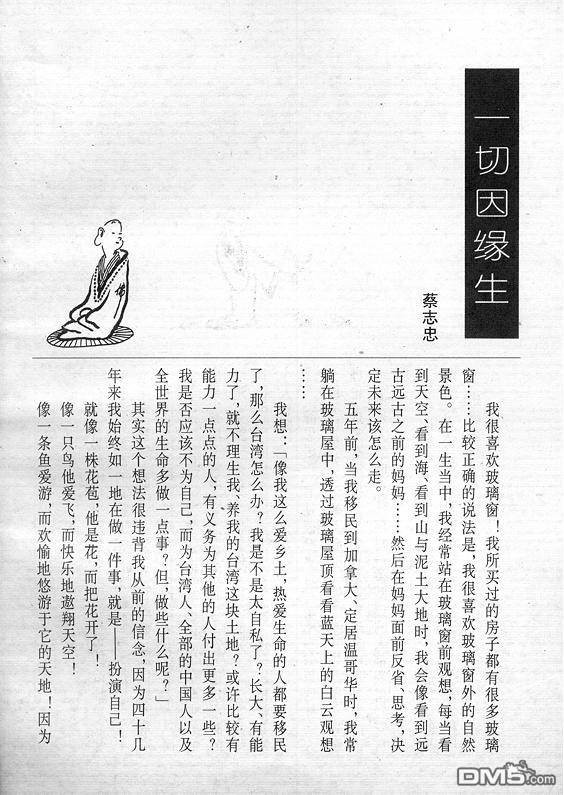 一切因缘生
蔡志忠
我很喜欢玻璃窗！我所买过的房子都有很多玻璃
窗……比较正确的说法是，我很喜欢玻璃窗外的自然
景色。在一生当中，我经常站在玻璃窗前观想，每当看
到天空、看到海、看到山与泥土大地时，我会像看到远
古远古之前的妈妈……然后在妈妈面前反省、思考，决
定未来该怎么走。
五年前，当我移民到加拿大、定居温哥华时，我常
躺在玻璃屋中，透过玻璃屋顶看看蓝天上的白云观想
……
我想：「像我这么爱乡土，热爱生命的人都要移民
了，那么台湾怎么办？我是不是太自私了？长大、有能
力了，就不理生我、养我的台湾这块土地？或许比较有
能力一点点的人，有义务为其他的人付出更多一些？
我是否应该不为自己，而为台湾人、全部的中国人以及
全世界的生命多做一点事？但，做些什么呢？」
其实这个想法很违背我从前的信念，因为四十几
年来我始终如一地在做一件事，就是——扮演自己！
就像一株花苞，他是花，而把花开了！
像一只鸟他爱飞，而快乐地遨翔天空！
像一条鱼爱游，而欢愉地悠游于它的天地！因为
DM5.com